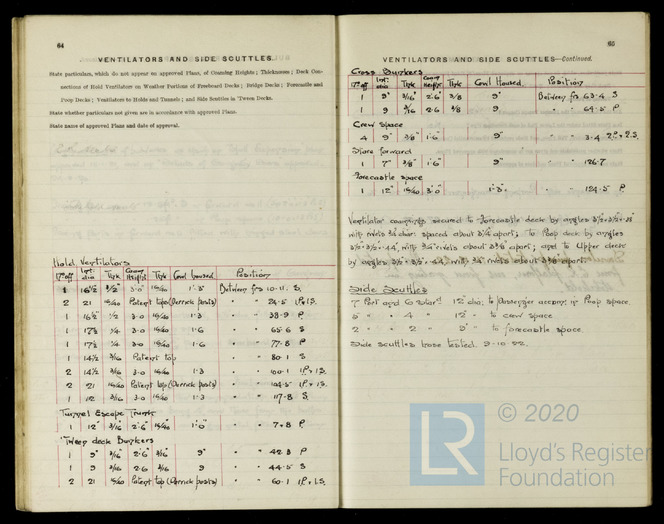 64
VENTILATORS AND SIDE SCUTTLES.
State particulars, which do not appear on approved Plans, of Coaming Heights; Thicknesses; Deck Con-
nections of Hold Ventilators on Weather Portions of Freeboard Decks; Bridge Decks; Forecastle and
Poop Decks; Ventilators to Holds and Tunnels; and Side Scuttles in 'Tween Decks.
State whether particulars not given are in accordance with approved Plans.
State name of approved Plans and date of approval.
Hold Ventilators
Nº off Int. dia Thk Coam Height Thk Cowl housed Position
1 16½ ½" 3-0 1'-3" Between frs 10-11. S.
2 21 Patent top (Derrick posts) " " 24-5 1P.1S.
1 16½ ½ 3-0 1-3 " " 38-9 P
1 17½ ¼ 3-0 1-6 " " 65-6 S
1 17½ ¼ 3-0 1-6 " " 77-8 P
1 14½ 3/16 Patent top " " 80-1 S
2 14½ 3/16 3-0 1-3 " " 100-1 1P.1S.
2 21 Patent top (Derrick posts) " " 104-5 1P.1S.
1 12 3/16 3-0 1-3 " " 117-8 S.
Tunnel Escape Trunk
1 12" 3/16 2'6" 1'-0" " " 7-8 P
'Tween deck Bunkers
1 9" 3/16" 2'6" 3/16" 9" " " 42-3 P
1 9 3/16 2-6 3/16 9 " " 44-5 S
2 21 Patent top (Derrick posts) " " 60-1 1P.1S.
65
VENTILATORS AND SIDE SCUTTLES—Continued.
Cross Bunkers
Nº off Int. dia Thk Coam Height Thk Cowl Housed Position
1 9" 3/16" 2'6" 3/8 9" Between frs 63-4 S
1 9 3/16 2-6 3/8 9 " " 69-5 P
Crew Space
4 9" 3/8" 1'6" 9" " " 3-4 2P.2S.
Store forward
1 7" 3/8" 1'6" 9" " " 126-7
Forecastle space
1 12" 3'0" 1'-3" " " 124-5 P.
Ventilator coamings secured to Forecastle deck by angles
with rivets ¾ diar. spaced about apart; to Poop deck by angles
with ¾" rivets about apart; and to Upper deck
by angles with ¾ rivets about apart.
Side Scuttles
7 Port and 6 Starbd 12" dia; to passenger accomn in Poop space.
5 " " 4 " 12" " to crew space.
2 " " 2 " 9" " to forecastle space.
Side scuttles hose tested. 9-10-22.
© 2020
LR
Lloyd's Register
Foundation